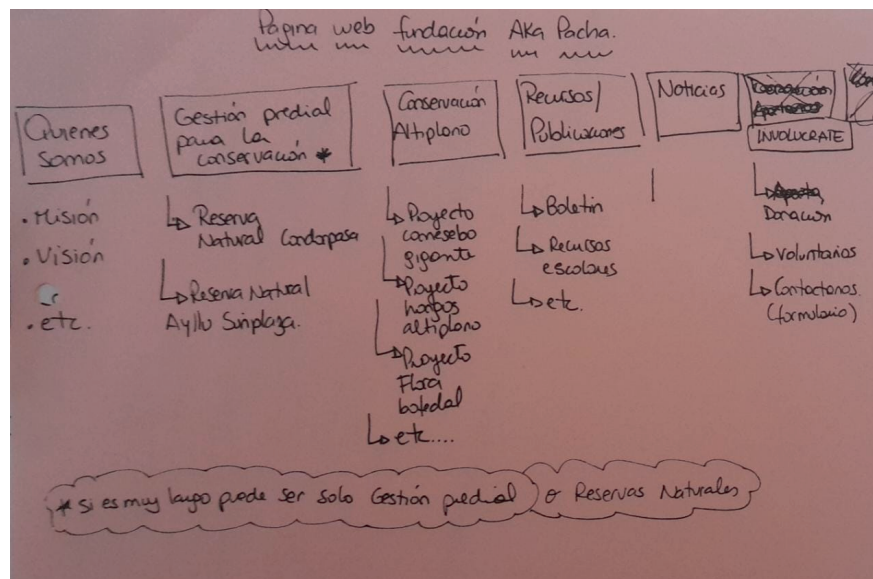 Página web fundación Aka Pacha.
Quienes
Somos
• Misión
• Visión
• etc.
Gestión predial
para la
conservación *
Reserva
Natural Condorpasa
Reserva Natural
Ayllu Suriplaza.
Conservación
Altiplano
Proyecto
comesebo
gigante
Proyecto
hongos
altiplano
Proyecto
Flora
bofedal
etc....
Recursos/
Publicaciones
Boletin
Recursos
escolares
etc.
Noticias
INVOLUCRATE
Donación
Voluntarios
Contactanos.
(formulario)
* si es muy largo puede ser solo Gestión predial o Reservas Naturales